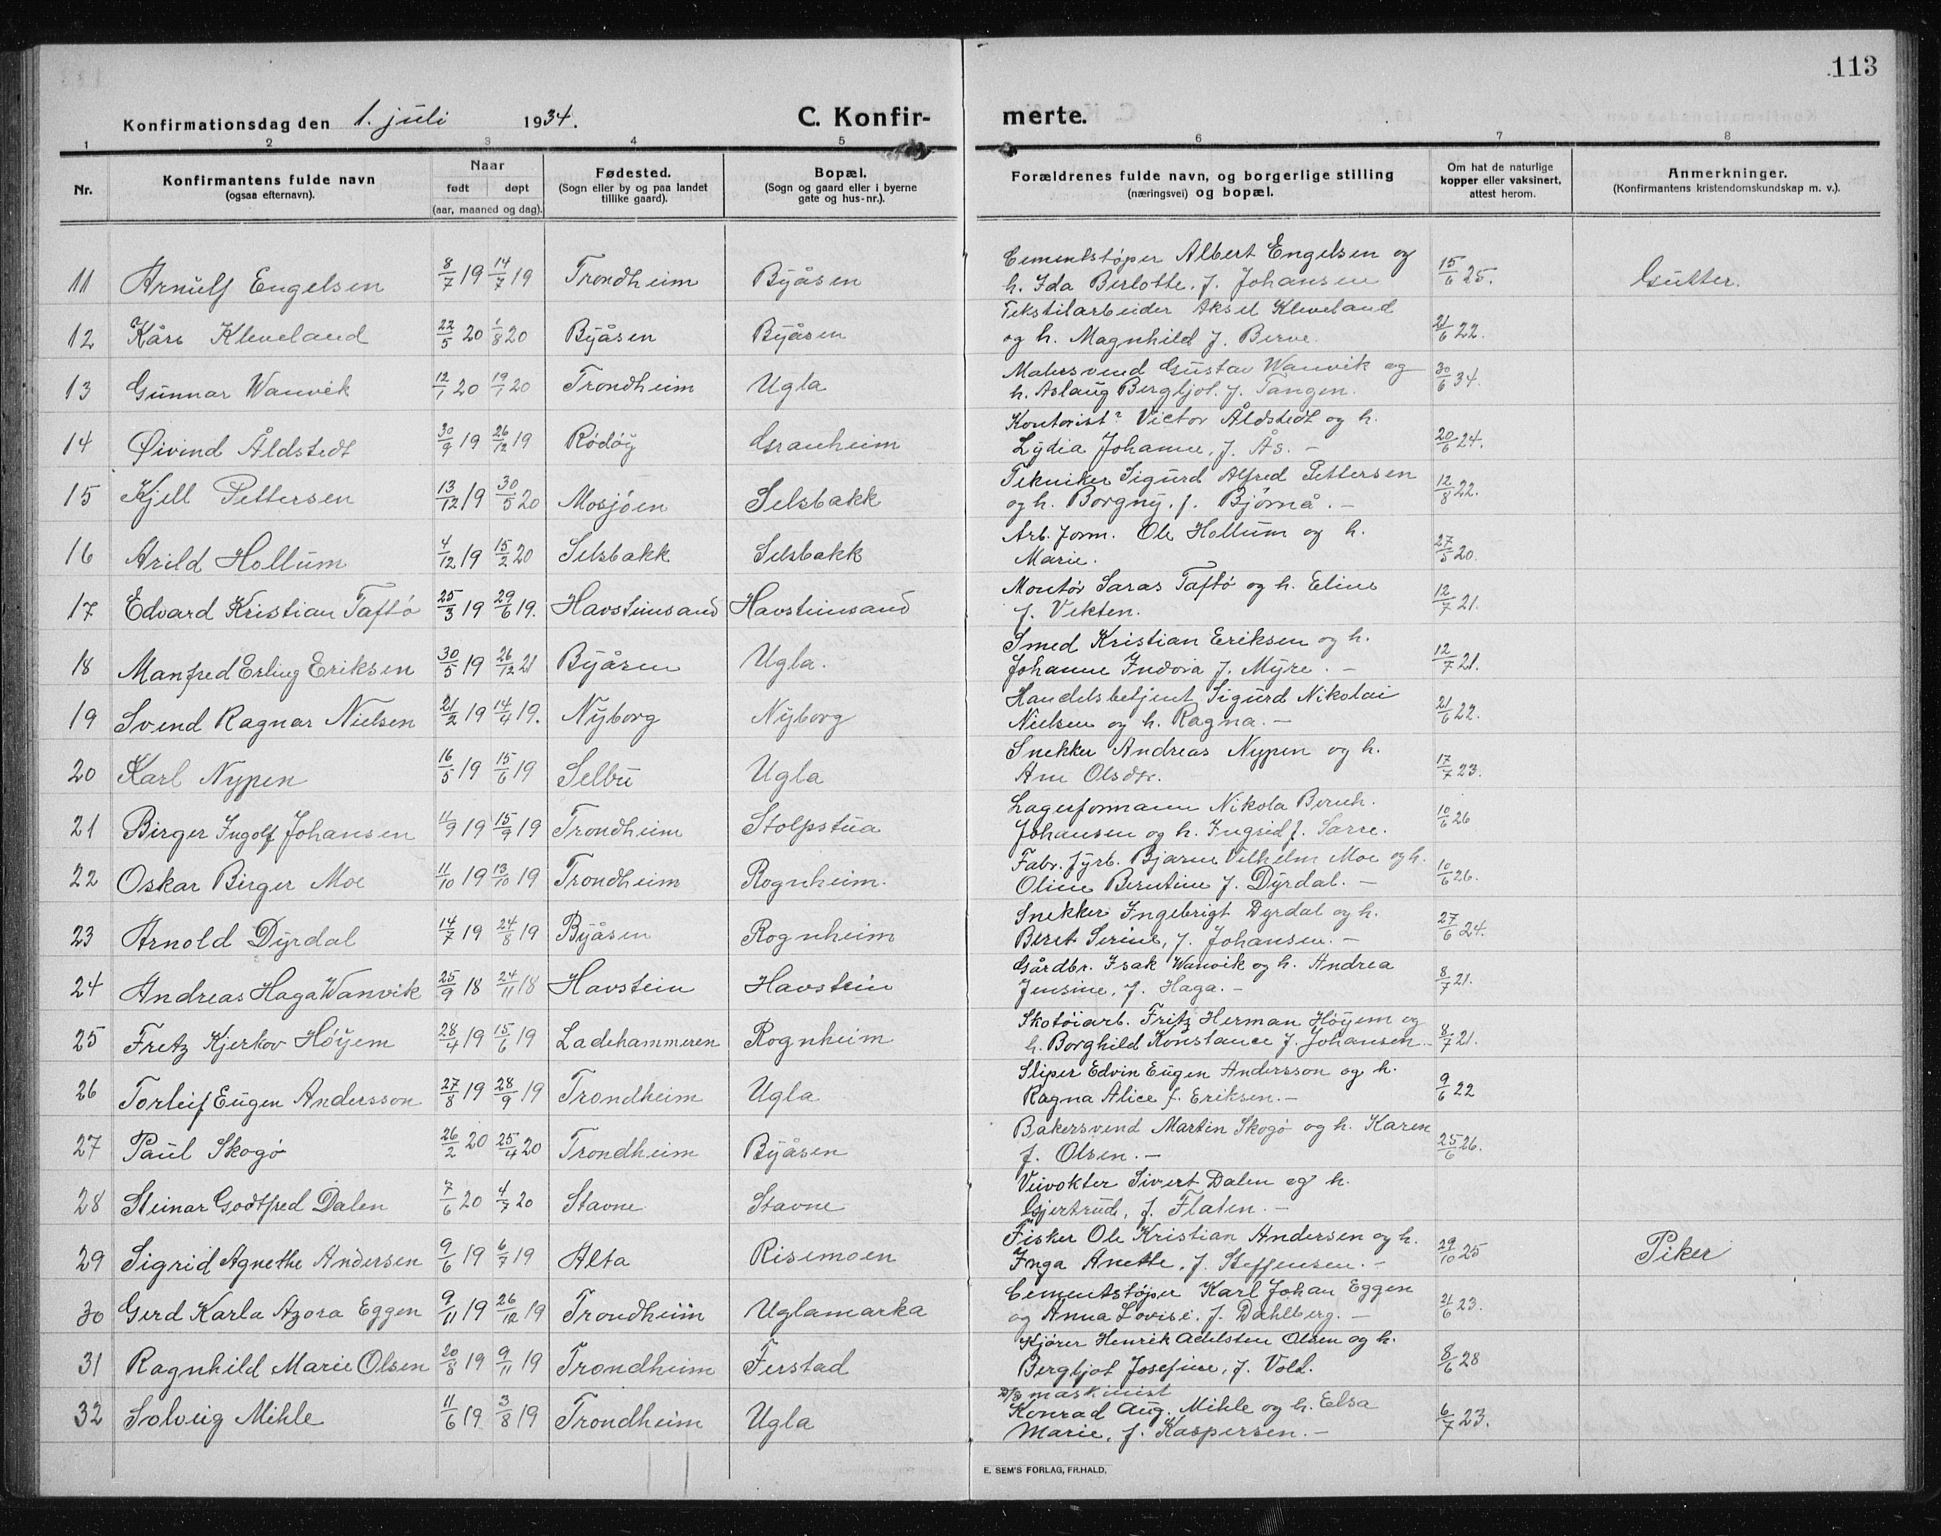 113
Konfirmationsdag den 1. juli 1934.
C. Konfirmerte.
1 2 3 4 5 6 7 8
Nr. Konfirmantens fulde navn (ogsaa efternavn). Naar født døpt (aar, maaned og dag). Fødested. (Sogn eller by og paa landet tillike gaard). Bopæl. (Sogn og gaard eller i byerne gate og hus-nr.). Forældrenes fulde navn, og borgerlige stilling (næringsvei) og bopæl. Om hat de naturlige kopper eller vaksinert, attest herom. Anmerkninger. (Konfirmantens kristendomskundskap m. v.).
11 Arnulf Engelsen 8/7 19 14/7 19 Trondheim Byåsen Cementstøper Albert Engelsen og h. Ida Berlotte, f. Johansen 15/6 25. Gutter.
12 Kåre Kleveland 22/5 20 1/8 20 Byåsen Byåsen Tekstilarbeider Aksel Kleveland og h. Magnhild f. Berve. 21/6 22.
13 Gunnar Wanvik 12/1 20 19/7 20 Trondheim Ugla Malersvend Gustav Wanvik og h. Aslaug Bergljot. f. Tangen. 30/6 34.
14 Øivind Åldstedt 30/9 19 26/12 19 Rødøy Granheim Kontorist Victor Åldstedt og h. Lydia Johanne, f. Ås. - 20/6 24.
15 Kjell Pettersen 13/12 19 30/5 20 Mosjøen Selsbakk Tekniker Sigurd Alfred Pettersen og h. Borgny. f. Bjørnå. - 12/8 22.
16 Arild Hollum 4/12 19 15/2 20 Selsbakk Selsbakk Arb. form. Ole Hollum og h. Marie. 27/5 20.
17 Edvard Kristian Taftø 25/3 19 29/6 19. Havsteinsand Havsteinsand Montør Saras Taftø og h. Eline f. Vekten. 12/7 21.
18 Manfred Erling Eriksen 30/5 19 26/12 21 Byåsen Ugla. Smed Kristian Eriksen og h. Johanne Indova f. Myre. - 12/7 21.
19 Svend Ragnar Nielsen 21/2 19 14/4 19. Nyborg Nyborg Handelsbetjent Sigurd Nikolai Nielsen og h. Ragna. - 21/6 22.
20 Karl Nypen 16/5 19 15/6 19 Selbu Ugla Snekker Andreas Nypen og h. Ane Olsdtr. 17/7 23.
21 Birger Ingolf Johansen 11/9 19 15/9 19 Trondheim Stolpstua Lagerformann Nikola Bernh. Johansen og h. Ingrid f. Sarre. 10/6 26
22 Oskar Birger Moe 11/10 19 13/10 19 Trondheim Rognheim. Fabr. fyrb. Bjarne Vilhelm Moe og h. Oline Berntine f. Dyrdal. - 10/6 26.
23 Arnold Dyrdal 14/7 19 24/8 19 Byåsen Rognheim Snekker Ingebrigt Dyrdal og h. Beret Serine, f. Johansen. - 27/6 24.
24 Andreas Haga Wanvik 25/9 18 24/11 18 Havstein Havstein Gårdbr. Isak Wanvik og h. Andrea Jensine, f. Haga. - 8/7 21.
25 Fretz Kjerkov Höyem 28/4 19 15/6 19 Ladehammeren Rognheim Skotøiarb. Fritz Herman Höyem og h. Borghild Konstance f. Johansen - 8/7 21.
26 Torleif Eugen Andersson 27/8 19 28/9 19 Trondheim Ugla Sliper Edvin Eugen Andersson og h. Ragna Alice f. Eriksen. - 9/6 22
27 Paul Skogø 26/2 20 25/4 20 Trondheim Byåsen Bakersvend Martin Skogø og h. Karen f. Olsen. - 25/6 26.
28 Steinar Godtfred Dalen 7/6 20 4/7 20 Stavne Stavne Veivokter Sivert Dalen og h. Gjertrud, f. Flaten. -
29 Sigrid Agnethe Andersen 9/6 19 6/7 19 Alta Risemoen Fisker Ole Kristian Andersen og h. Inga Anette, f. Steffensen. - 29/10 25 Piker
30 Gerd Karla Azora Eggen 9/11 19 26/12 19 Trondheim Uglamarka Cementstøper Karl Johan Eggen og Anna Lovise. f. Dahlberg. - 21/6 23.
31 Ragnhild Marie Olsen 20/8 19 9/11 19 Trondheim Ferstad Kjører Henrik Adelsten Olsen og h. Bergljot Josefine, f. Vold. 8/6 28
32 Solveig Mihle 11/6 19 3/8 19 Trondheim Ugla maskinist Konrad Aug. Mihle og h. Elsa Marie, f. Kaspersen. - 6/7 23.
E. SEM'S FORLAG, FR.HALD.